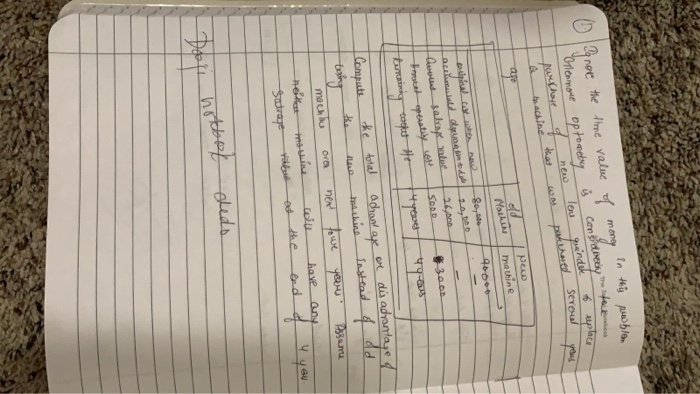 ① Ignore the time value of money in this problem
Glenmore optometry is considering the
purchase of new lens grinder to replace
a machine that was purchased several years
ago
old machine new machine
original cost when new 80,000 90000
accumulated depreciation to date —
Current salvage value 26,000 —
annual operating cost 5000 $3000
Remaining useful life 4 years 4 years
Compute the total advantage or disadvantage of
using the new machine instead of old
machine over next four years. Assume
neither machine will have any
salvage value at the end of 4 year